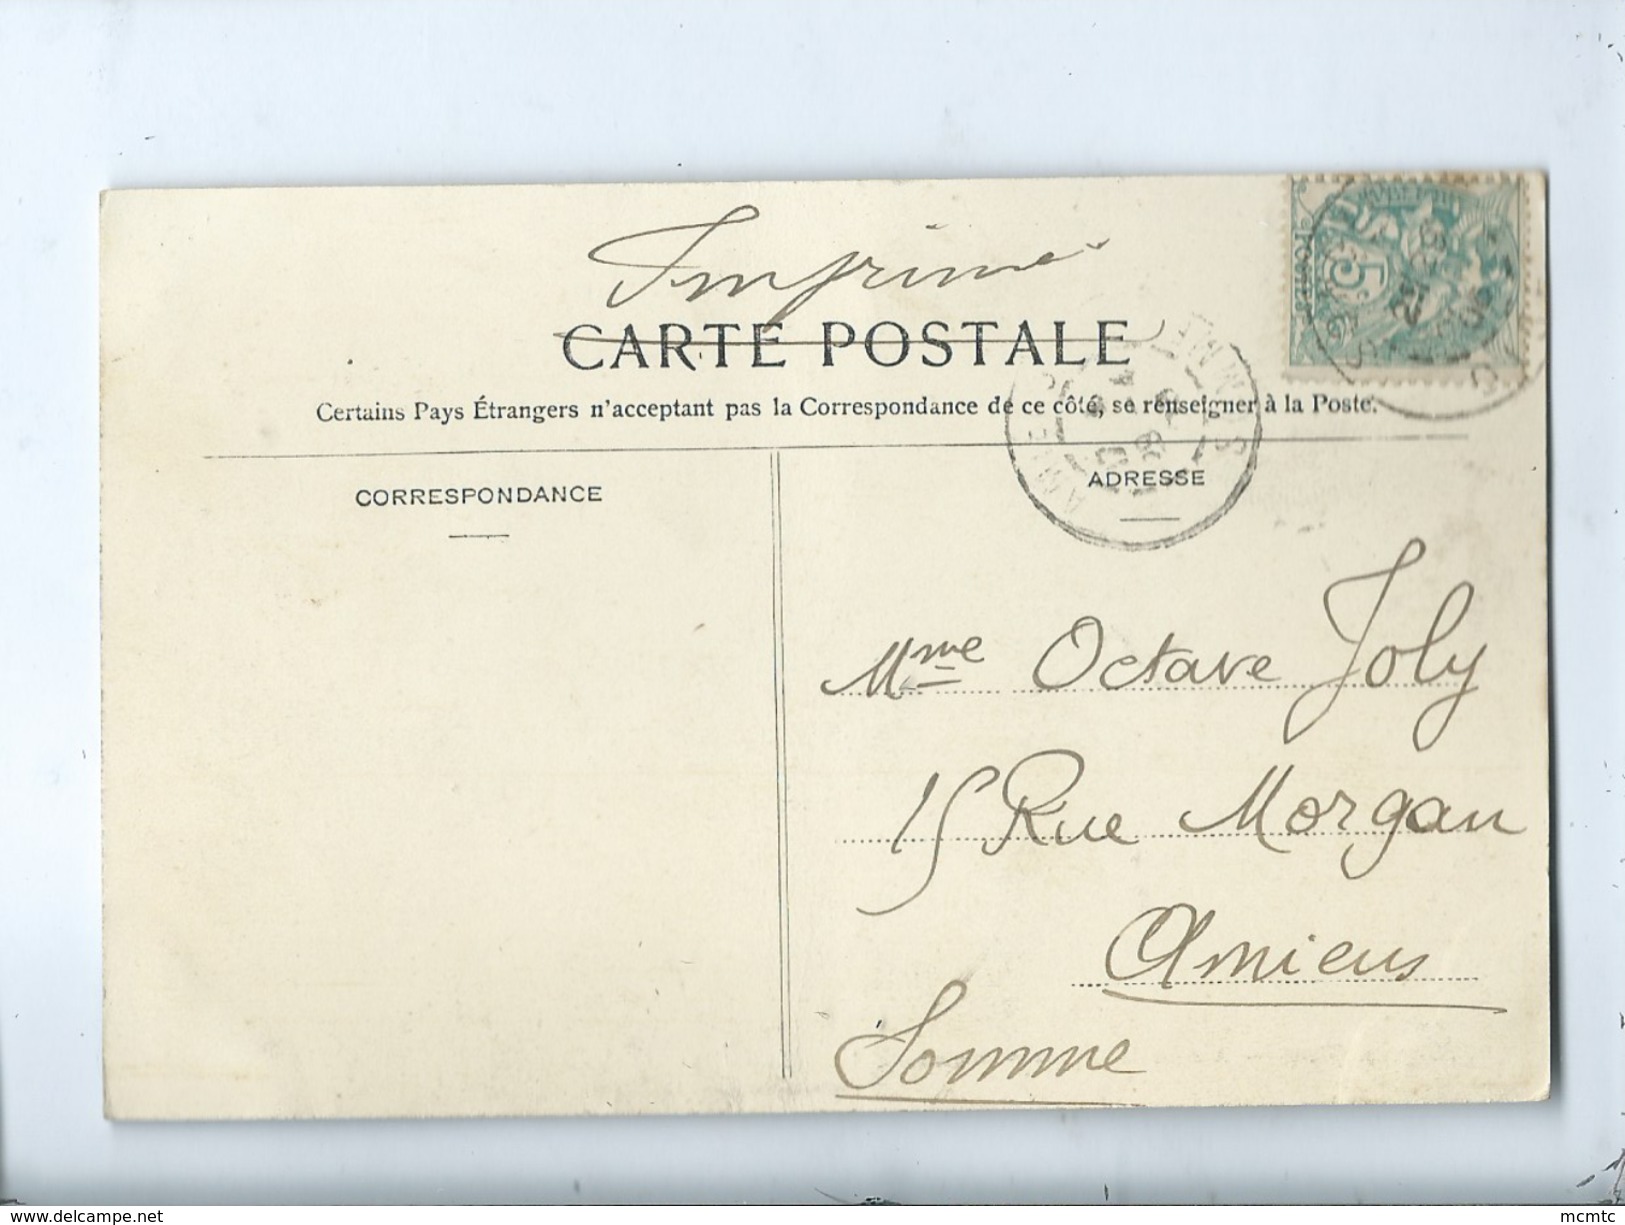 Imprimé
CARTE POSTALE
Certains Pays Étrangers n'acceptent pas la Correspondance de ce côté, se renseigner à la Poste.
CORRESPONDANCE
ADRESSE
AMIENS
SOMME
POSTES
5
Mme Octave Joly
15 Rue Morgan
Amiens
Somme
www.delcampe.net
mcmtc